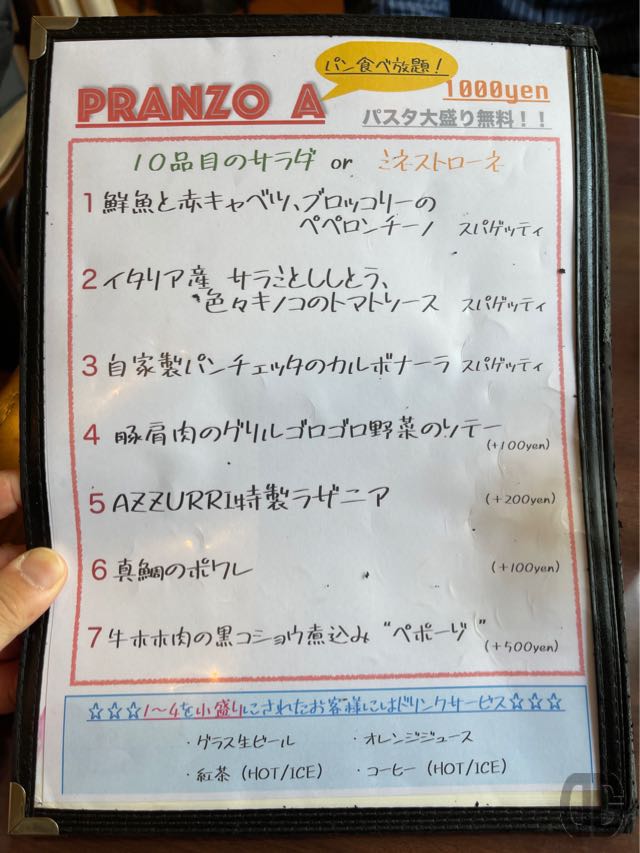 パン食べ放題！
PRANZO A
1000yen
パスタ大盛り無料！！
10品目のサラダ or ミネストローネ
1 鮮魚と赤キャベツ、ブロッコリーの
ペペロンチーノ スパゲッティ
2 イタリア産 サラミとししとう、
色々キノコのトマトソース スパゲッティ
3 自家製パンチェッタのカルボナーラ スパゲッティ
4 豚肩肉のグリルゴロゴロ野菜のソテー
(+100yen)
5 AZZURRI特製ラザニア (+200yen)
6 真鯛のポワレ (+100yen)
7 牛ホホ肉の黒コショウ煮込み “ペポーゾ”
(+500yen)
☆☆☆1〜4を小盛りにされたお客様にはドリンクサービス☆☆☆
・グラス生ビール ・オレンジジュース
・紅茶（HOT/ICE） ・コーヒー（HOT/ICE）